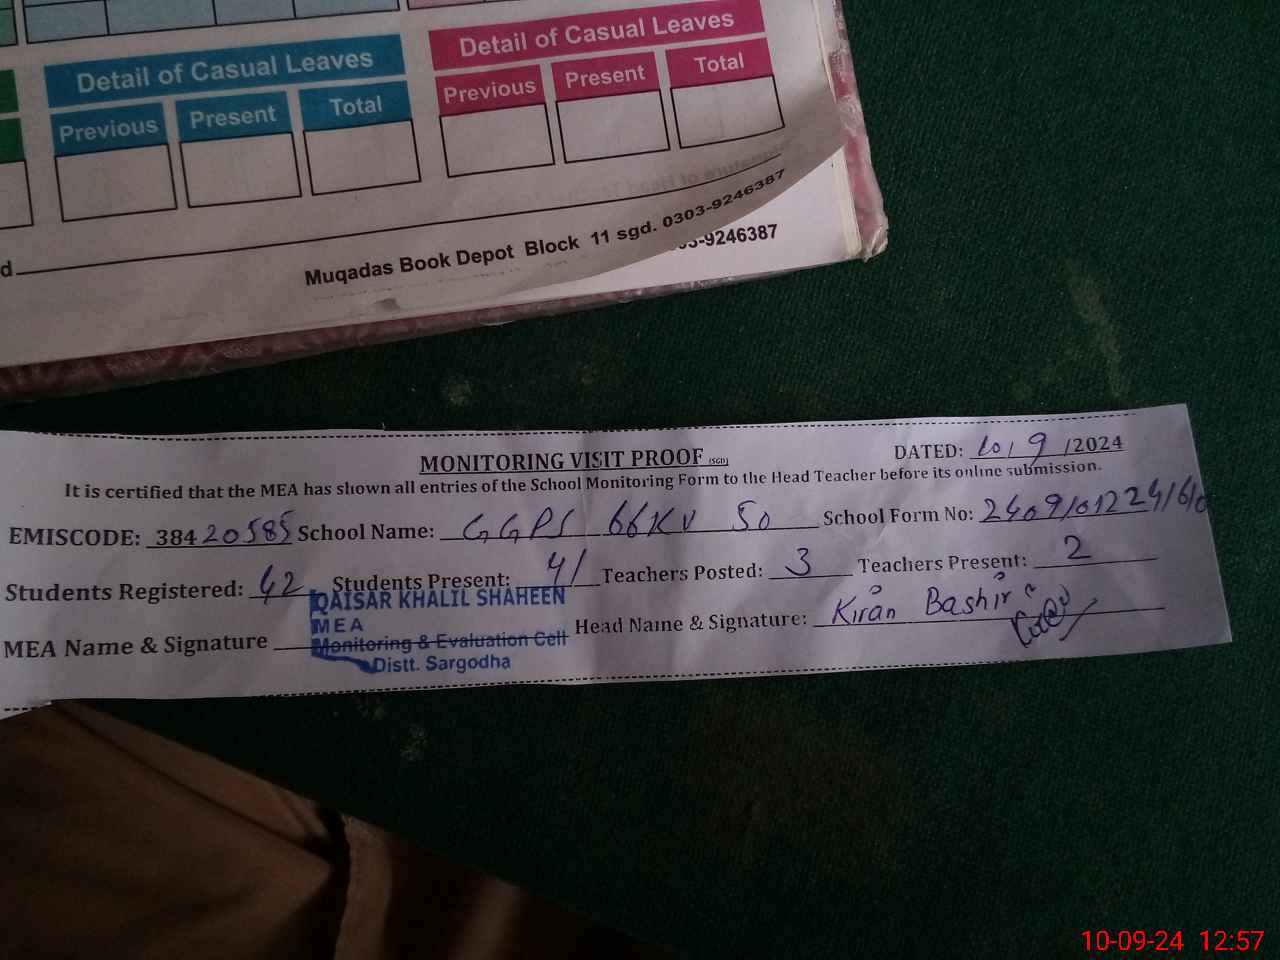 Detail of Casual Leaves
Previous Present Total
Detail of Casual Leaves
Previous Present Total
d
Muqadas Book Depot Block 11 sgd. 0303-9246387
-9246387
MONITORING VISIT PROOF (SGD)
DATED: 10/9/2024
It is certified that the MEA has shown all entries of the School Monitoring Form to the Head Teacher before its online submission.
EMISCODE: 38420585 School Name: GGPS 66KV SO School Form No:
Students Registered: 42 Students Present: 41 Teachers Posted: 3 Teachers Present: 2
MEA Name & Signature Head Name & Signature: Kiran Bashir
QAISAR KHALIL SHAHEEN
MEA
Monitoring & Evaluation Cell
Distt. Sargodha
10-09-24 12:57